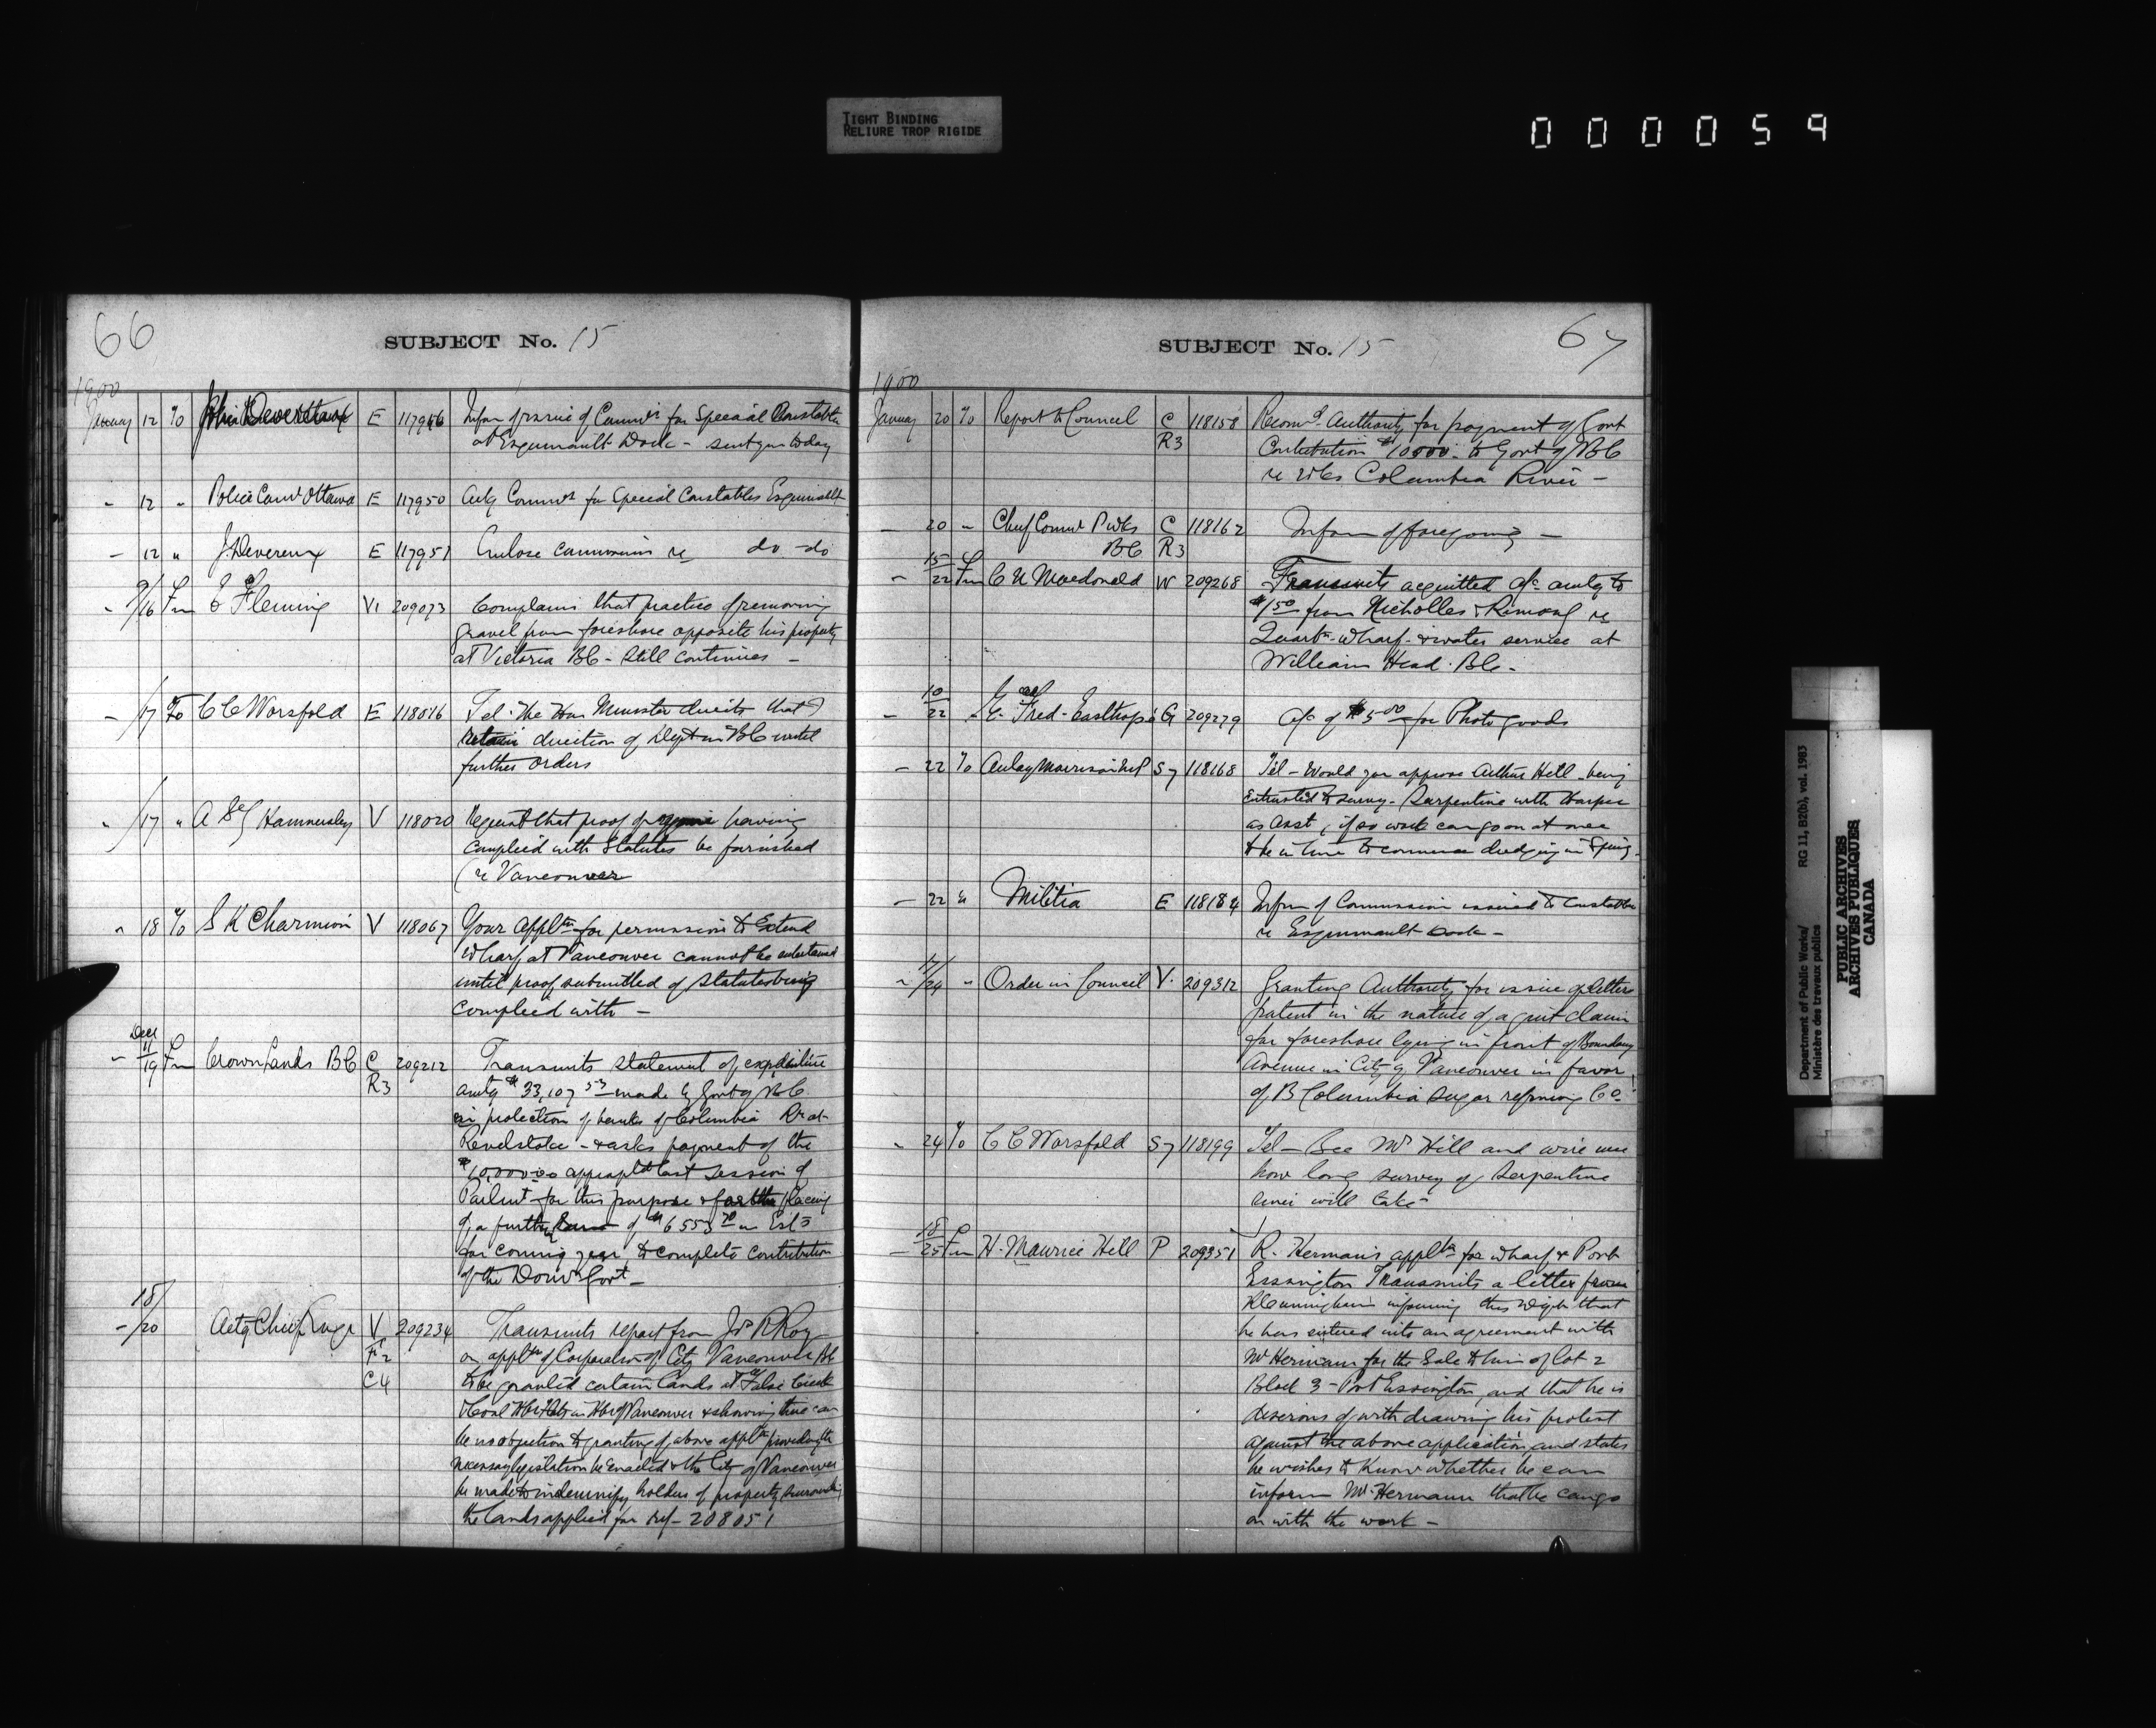 TIGHT BINDING
RELIURE TROP RIGIDE
000059
66
SUBJECT No. 15
1900
January 12 To E 117946 Infm of issue of Commrs for Special Constables
at Esquimault Dock - sent you today
" 12 " Police Comr Ottawa E 117950 Ackg Commrs for Special Constables Esquimault
- 12 " J. Devereux E 117951 Enclose commission re do - do
" 9/16 Fm E Fleming V1 209073 Complains that practice of removing
gravel from foreshore opposite his property
at Victoria BC - still continues -
- 17 To C C Worsfold E 118016 Tel. The Hon Minister directs that
retain direction of Dept in BC until
further orders
" 17 " A St G Hammersley V 118020 Request that proof of having
complied with Statutes be furnished
(re Vancouver
" 18 To S K Charmion V 118067 Your Appltn for permission to Extend
wharf at Vancouver cannot be entertained
until proof submitted of statutes being
complied with -
Dec
" 11/19 Fm Crown Lands BC C 209212 Transmits statement of expenditure
R3 amtg $33,107 53 made by Govt of BC
in protection of banks of Columbia Rr at
Revelstoke - & asks payment of the
$10,000 00 appropted last session of
Parlmt for this purpose & for the placing
of a further sum of $6553 70 in Ests
for coming year to complete contribution
of the Domn Govt -
- 18/20 Actg Chief Engr V 209234 Transmits report from Js R Roy
F2 on appltn of Corporation of City Vancouver BC
C4 to be granted certain lands at False Creek
& Coal Hbr in Hbr of Vancouver & showing there can
be no objection to granting of above appltn providing the
necessary legislation be enacted & the City of Vancouver
be made to indemnify holders of property surrounding
the lands applied for Ref - 208051
67
SUBJECT No. 15
1900
January 20 To Report to Council C 118158 Recomd Authority for payment of Govt
R3 Contribution $10000 - to Govt of BC
re wks Columbia River -
- 20 " Chief Comr P Wks C 118162 Infm of foregoing -
BC R3
- 15/22 Fm C N Macdonald W 209268 Transmits acquitted a/c amtg to
$1 50 from Nicholles & Renouf re
Quartn - wharf - & water service at
William Head. BC -
- 10/22 " Fred - Easthope G 209279 A/c of $5 00 for Photo goods
- 22 To Aulay Morrison MP S7 118168 Tel - Would you approve Arthur Hill being
entrusted to survey - Serpentine with Harper
as Asst, if so work can go on at once
& be in time to commence dredging in Spring -
- 22 " Militia E 118184 Infm of Commission issued to Constables
re Esquimault Dock -
" 17/24 " Order in Council V. 209312 Granting Authority for issue of letters
patent in the nature of a quit claim
for foreshore lying in front of Boundary
Avenue in City of Vancouver in favor
of B Columbia Sugar refining Co.
" 24 To C C Worsfold S7 118199 Tel - See Mr Hill and wire me
how long survey of Serpentine
river will take -
- 18/25 Fm H. Maurice Hill P 209351 R. Hermans appltn for wharf & Port
Essington Transmits a letter from
R Cunningham informing this Dept that
he has entered into an agreement with
Mr Hermann for the Sale to him of Lot 2
Block 3 - Port Essington, and that he is
desirous of withdrawing his protest
against the above application, and states
he wishes to know whether he can
inform Mr Hermann that he can go
on with the work -
Department of Public Works/ RG 11, B2(b), vol. 1983
Ministère des travaux publics
PUBLIC ARCHIVES
ARCHIVES PUBLIQUES
CANADA